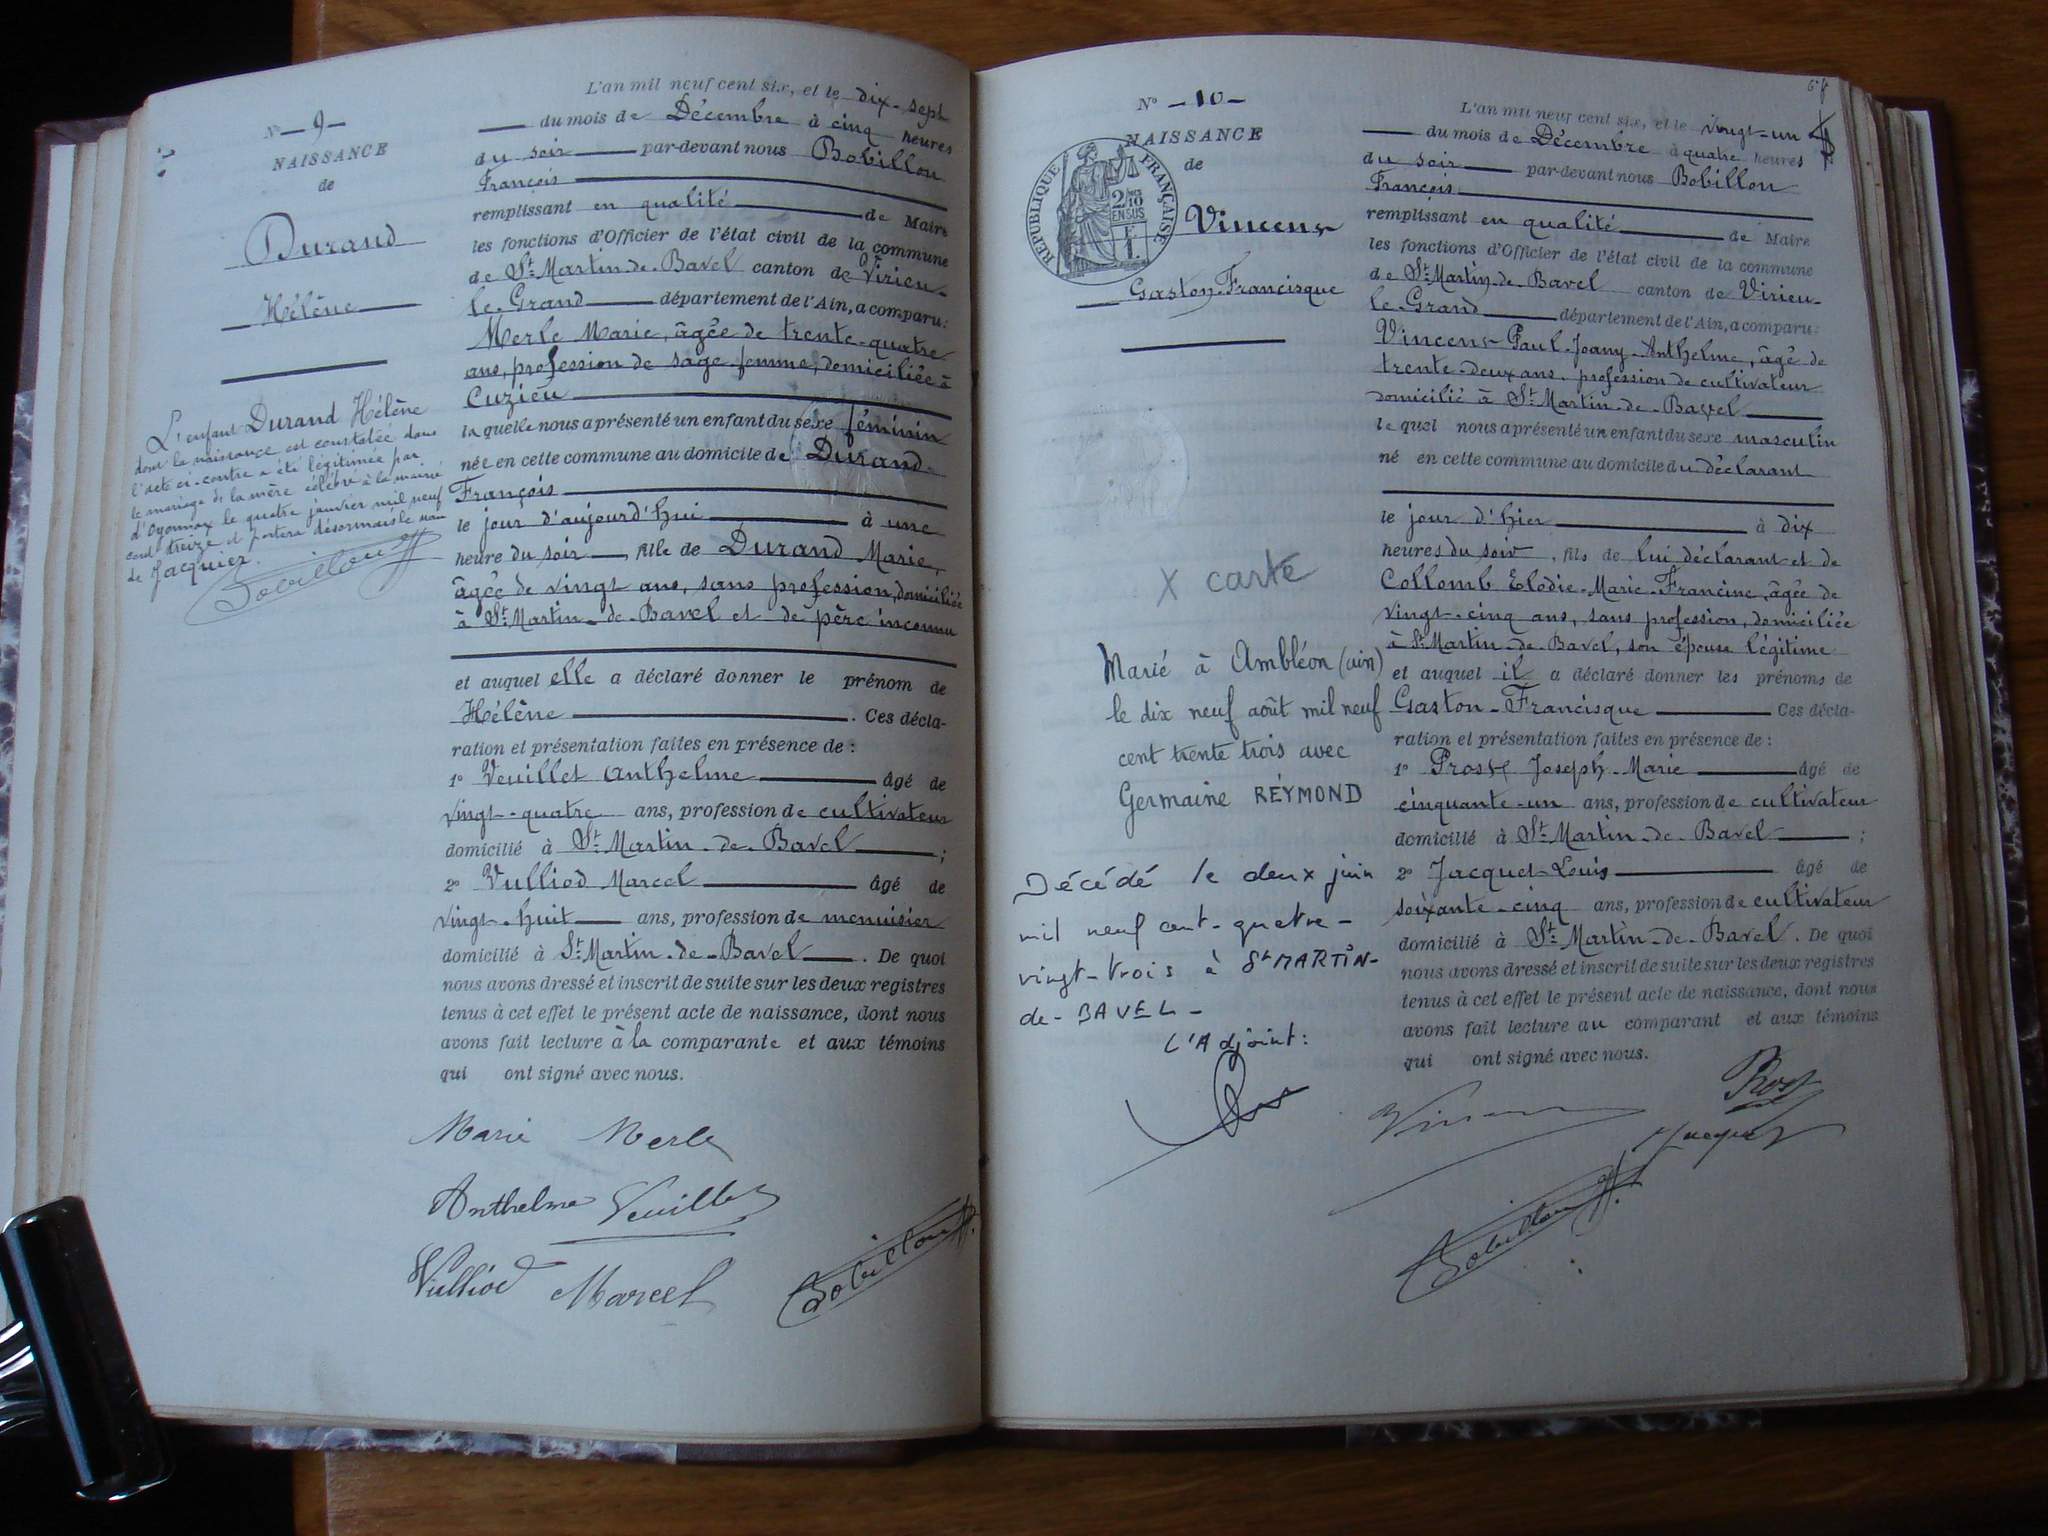 N° — 9 —
NAISSANCE
de
Durand
Hélène
L'enfant Durand Hélène
dont la naissance est constatée dans
l'acte ci-contre a été légitimée par
le mariage de la mère célébré à la mairie
d'Oyonnax le quatre janvier mil neuf
cent treize et portera désormais le nom
de Jacquier.
Bobillon
L'an mil neuf cent six, et le dix-sept
du mois de Décembre à cinq heures
du soir par-devant nous Bobillon
François
remplissant en qualité de Maire
les fonctions d'Officier de l'état civil de la commune
de St Martin-de-Bavel canton de Virieu-
le-Grand département de l'Ain, a comparu:
Merle Marie, âgée de trente-quatre
ans, profession de sage-femme, domiciliée à
Cuzieu
la quelle nous a présenté un enfant du sexe féminin
née en cette commune au domicile de Durand
François
le jour d'aujourd'hui à une
heure du soir, fille de Durand Marie,
âgée de vingt ans, sans profession, domiciliée
à St Martin-de-Bavel et de père inconnu
et auquel elle a déclaré donner le prénom de
Hélène. Ces décla-
ration et présentation faites en présence de :
1° Veuillet Anthelme âgé de
vingt-quatre ans, profession de cultivateur
domicilié à St Martin-de-Bavel ;
2° Vulliod Marcel âgé de
vingt-huit ans, profession de menuisier
domicilié à St Martin-de-Bavel. De quoi
nous avons dressé et inscrit de suite sur les deux registres
tenus à cet effet le présent acte de naissance, dont nous
avons fait lecture à la comparante et aux témoins
qui ont signé avec nous.
Marie Merle
Anthelme Veuillet
Vulliod Marcel Bobillon
N° — 10 —
NAISSANCE
de
RÉPUBLIQUE FRANÇAISE
2/10 EN SUS
Vincent
Gaston-Francisque
X carte
Marié à Ambléon (ain)
le dix neuf août mil neuf
cent trente trois avec
Germaine REYMOND
Décédé le deux juin
mil neuf cent-quatre-
vingt-trois à St MARTIN-
de-BAVEL-
L'Adjoint:
L'an mil neuf cent six, et le vingt-un
du mois de Décembre à quatre heures
du soir par-devant nous Bobillon
François
remplissant en qualité de Maire
les fonctions d'Officier de l'état civil de la commune
de St Martin-de-Bavel canton de Virieu-
le-Grand département de l'Ain, a comparu:
Vincent Paul-Joany-Anthelme, âgé de
trente-deux ans, profession de cultivateur
domicilié à St Martin-de-Bavel
le quel nous a présenté un enfant du sexe masculin
né en cette commune au domicile du déclarant
le jour d'hier à dix
heures du soir, fils de lui déclarant et de
Collomb Elodie-Marie-Francine, âgée de
vingt-cinq ans, sans profession, domiciliée
à St Martin-de-Bavel, son épouse légitime
et auquel il a déclaré donner les prénoms de
Gaston-Francisque Ces décla-
ration et présentation faites en présence de :
1° Prost Joseph-Marie âgé de
cinquante-un ans, profession de cultivateur
domicilié à St Martin-de-Bavel ;
2° Jacquet Louis âgé de
soixante-cinq ans, profession de cultivateur
domicilié à St Martin-de-Bavel. De quoi
nous avons dressé et inscrit de suite sur les deux registres
tenus à cet effet le présent acte de naissance, dont nous
avons fait lecture au comparant et aux témoins
qui ont signé avec nous.
Vincent Prost
Jacquet
Bobillon